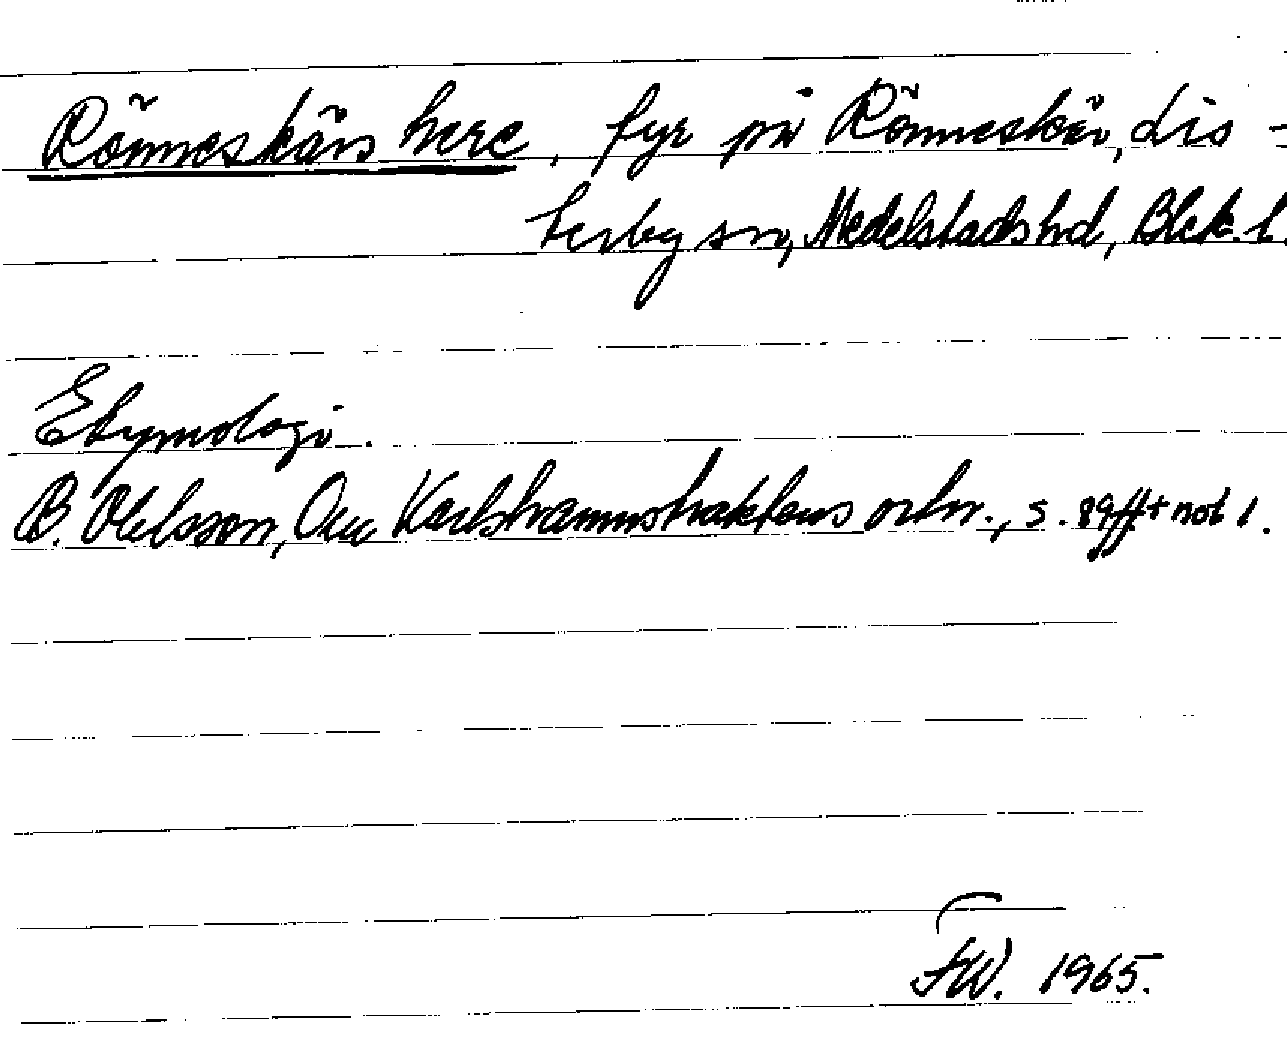 Rönneskärs here, fyr på Rönneskär, Lis-
terby sn, Medelstads hd, Blek. l.
Etymologi.
B. Olelsson, Om Karlshamnstraktens ortn., s. 89 ff + not 1.
FW. 1965.